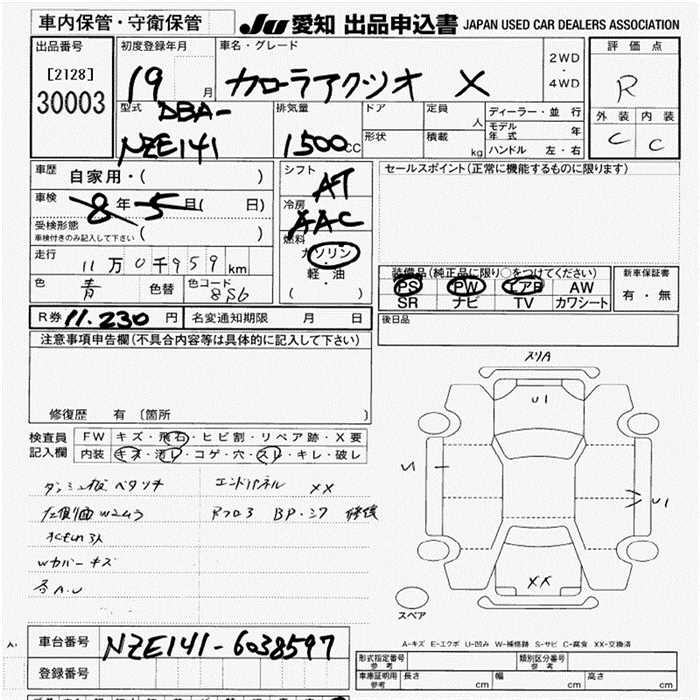 車内保管・守衛保管
JU 愛知 出品申込書 JAPAN USED CAR DEALERS ASSOCIATION
出品番号
[2128]
30003
初度登録年月
19 月
車名・グレード
カローラアクシオ X
2WD
・
4WD
評価点
R
外装 内装
C C
型式
DBA-
NZE141
排気量
1500cc
ドア
形状
定員
人
積載
kg
ディーラー・並行
モデル年式 年
ハンドル 左・右
車歴
自家用・( )
車検
8年 5月( 日)
受検形態
車検付きのみ記入して下さい ( )
走行
11万0千959km
色
青
色替
色コード
8S6
シフト
AT
冷房
AAC
燃料
ガソリン
・
軽・油
( )
セールスポイント(正常に機能するものに限ります)
装備品(純正品に限り○をつけてください)
PS PW エアB AW
SR ナビ TV カワシート
新車保証書
有・無
後日品
R券 11.230 円
名変通知期限 月 日
注意事項申告欄(不具合内容等は具体的に記入して下さい)
修復歴 有 〔箇所 〕
検査員
記入欄
FW キズ・飛石・ヒビ割・リペア跡・X要
内装 キズ・汚レ・コゲ・穴・スレ・キレ・破レ
ダッシュ板ベタツキ
エンドパネル XX
BP・
修復
Wカバーキズ
各A.U
スリA
U1
U1
XX
スペア
A-キズ E-エクボ U-凹み W-補修跡 S-サビ C-腐食 XX-交換済
車台番号
NZE141-6038597
登録番号
形式指定番号
参考
類別区分番号
参考
車庫証明用
参考
長さ cm 幅 cm 高さ cm